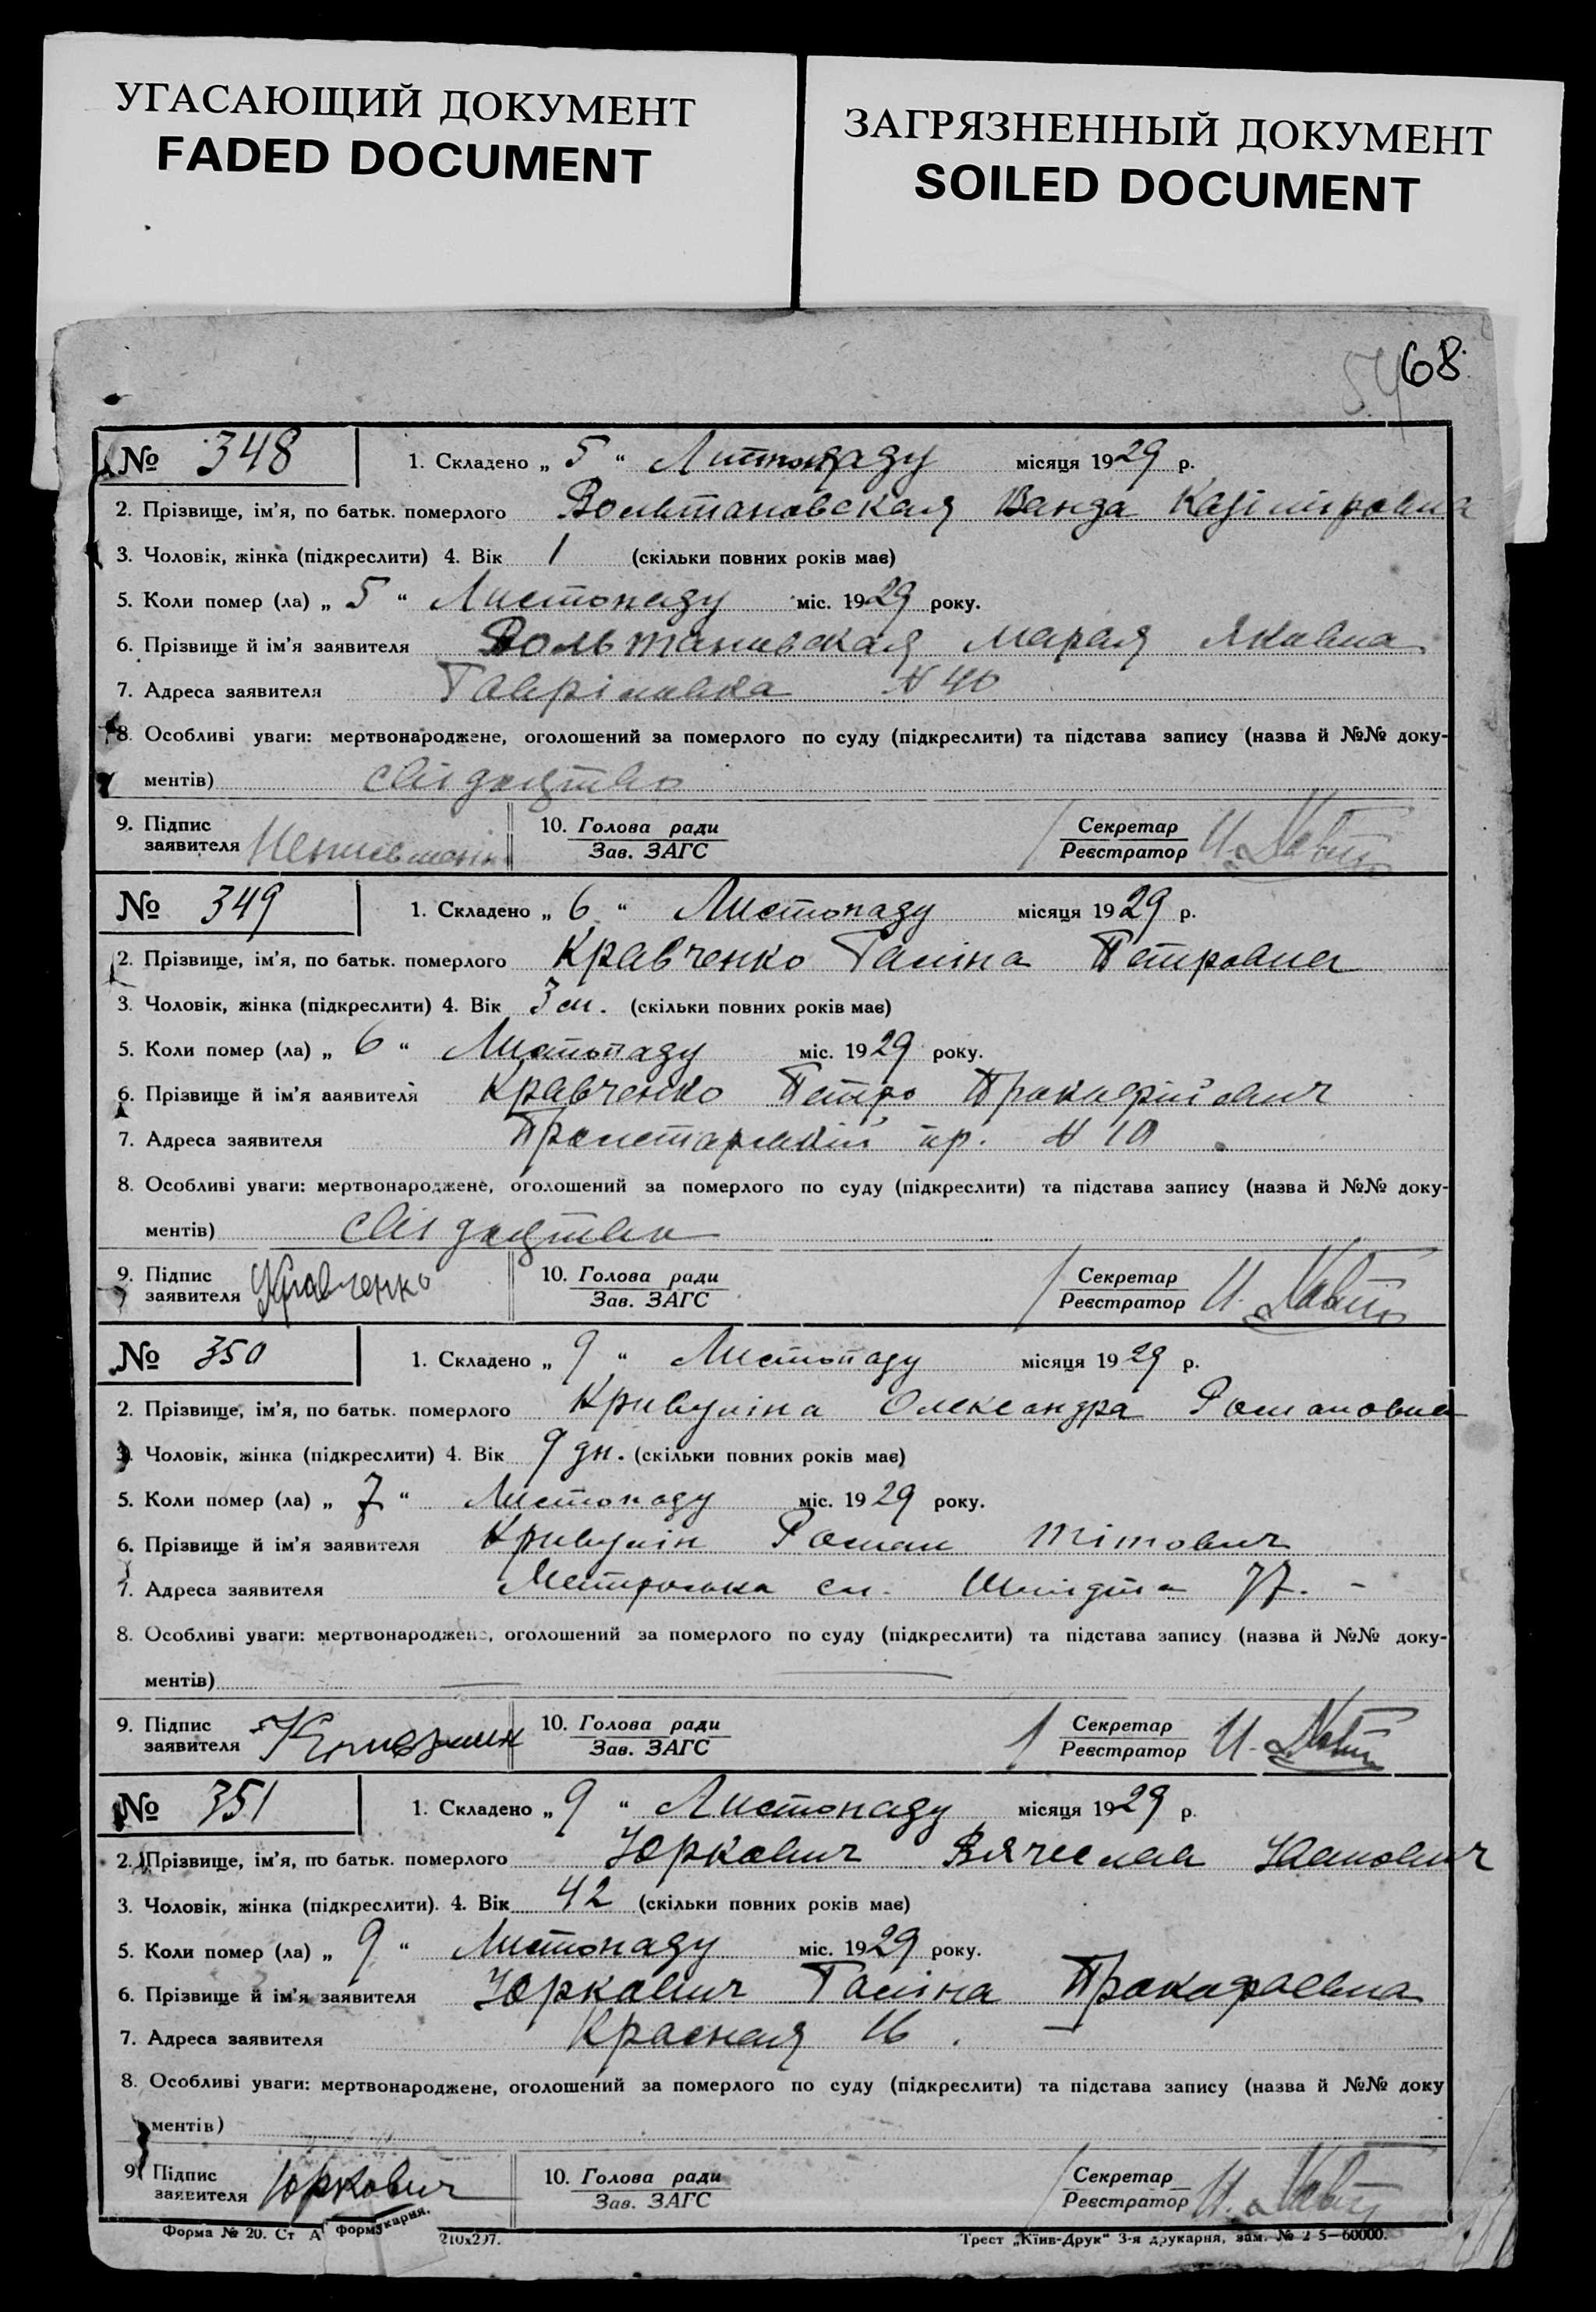 УГАСАЮЩИЙ ДОКУМЕНТ
FADED DOCUMENT
ЗАГРЯЗНЕННЫЙ ДОКУМЕНТ
SOILED DOCUMENT
54 68
№ 348 1. Складено „ 5 “ Листопаду місяця 1929 р.
2. Прізвище, ім’я, по батьк. померлого Вольтановская Ванда Казіміровна
3. Чоловік, жінка (підкреслити) 4. Вік 1 (скільки повних років має)
5. Коли помер (ла) „ 5 “ Листопаду міс. 1929 року.
6. Прізвище й ім’я заявителя Вольтановская Марія Яковна
7. Адреса заявителя Гавріловка № 40
8. Особливі уваги: мертвонароджене, оголошений за померлого по суду (підкреслити) та підстава запису (назва й №№ доку-
ментів) свідоцтво
9. Підпис заявителя 10. Голова ради Зав. ЗАГС Секретар Реєстратор И.
№ 349 1. Складено „ 6 “ Листопаду місяця 1929 р.
2. Прізвище, ім’я, по батьк. померлого Кравченко Галіна Петровна
3. Чоловік, жінка (підкреслити) 4. Вік 3 м. (скільки повних років має)
5. Коли помер (ла) „ 6 “ Листопаду міс. 1929 року.
6. Прізвище й ім’я заявителя Кравченко Петро Прокофійович
7. Адреса заявителя Пролетарскій пр. № 10
8. Особливі уваги: мертвонароджене, оголошений за померлого по суду (підкреслити) та підстава запису (назва й №№ доку-
ментів) свідоцтво
9. Підпис заявителя Кравченко 10. Голова ради Зав. ЗАГС Секретар Реєстратор И.
№ 350 1. Складено „ 9 “ Листопаду місяця 1929 р.
2. Прізвище, ім’я, по батьк. померлого Кривуліна Олександра Романовна
3. Чоловік, жінка (підкреслити) 4. Вік 9 дн. (скільки повних років має)
5. Коли помер (ла) „ 7 “ Листопаду міс. 1929 року.
6. Прізвище й ім’я заявителя Кривулін Роман Тітович
7. Адреса заявителя сл. Шмідта 77. –
8. Особливі уваги: мертвонароджене, оголошений за померлого по суду (підкреслити) та підстава запису (назва й №№ доку-
ментів)
9. Підпис заявителя 10. Голова ради Зав. ЗАГС Секретар Реєстратор И.
№ 351 1. Складено „ 9 “ Листопаду місяця 1929 р.
2. Прізвище, ім’я, по батьк. померлого Юркович Вячеслав Іванович
3. Чоловік, жінка (підкреслити). 4. Вік 42 (скільки повних років має)
5. Коли помер (ла) „ 9 “ Листопаду міс. 1929 року.
6. Прізвище й ім’я заявителя Юркович Галіна Прокофьевна
7. Адреса заявителя Красная 16.
8. Особливі уваги: мертвонароджене, оголошений за померлого по суду (підкреслити) та підстава запису (назва й №№ доку
ментів)
9. Підпис заявителя Юркович 10. Голова ради Зав. ЗАГС Секретар Реєстратор И.
Форма № 20. Ст А 210х297. Трест „Київ-Друк“ 3-я друкарня, зам. № 2 5—60000.